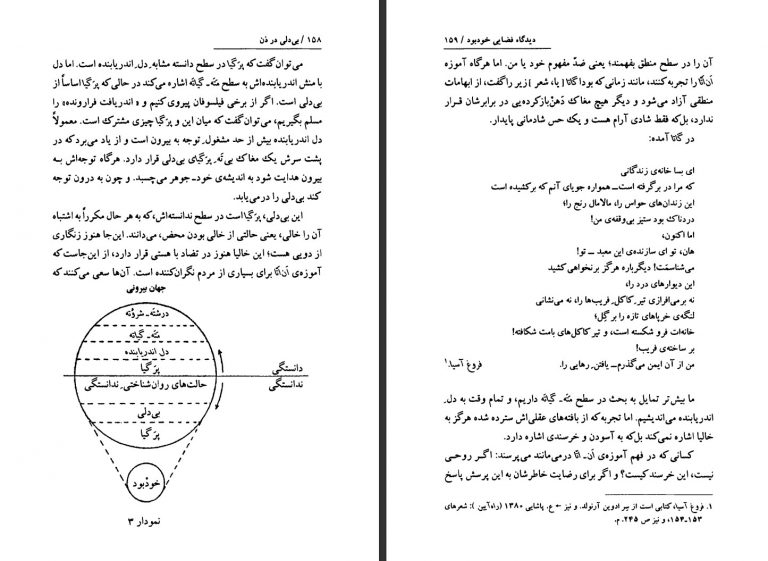 ۱۵۸ / بی‌دلی در ذن
می‌توان گفت که پرَگیا در سطح دانسته مشابه ِ دل ِ اندریابنده است. اما دل
با منش اندریابنده‌اش به سطح مَنَه‌ـ گیانه اشاره می‌کند در حالی که پرَگیا اساساً از
بی‌دلی است. اگر از برخی فیلسوفان پیروی کنیم و «اندریافت فرارونده» را
مسلم بگیریم، می‌توان گفت که میان این و پرَگیا چیزی مشترک است. معمولاً
دل اندریابنده بیش از حد مشغول ِ توجه به بیرون است و از یاد می‌برد که در
پشت سرش یک مغاک بی‌تَه ِ پرَگیای بی‌دلی قرار دارد. هرگاه توجه‌اش به
بیرون هدایت شود به اندیشه‌ی خودـ جوهر می‌چسبد. و چون به درون توجه
کند بی‌دلی را درمی‌یابد.
این بی‌دلی، پرَگیا است در سطح ندانسته‌اش، که به هر حال مکرراً به اشتباه
آن را خالی، یعنی حالتی از خالی بودن محض، می‌دانند. این‌جا هنوز زنگاری
از دویی هست؛ این خالیا هنوز در تضاد با هستی قرار دارد، از این‌جاست که
آموزه‌ی اَن‌اتّا برای بسیاری از مردم نگران‌کننده است. آن‌ها سعی می‌کنند که
جهان بیرونی
درشتَه‌ـ شروُته
مَنَه‌ـ گیانه
دل اندریابنده
پرَگیا
دانستگی
حالت‌های روان‌شناختی ِ ندانستگی
ندانستگی
بی‌دلی
پرَگیا
خودبود
نمودار ۳
دیدگاه فضایی خودبود / ۱۵۹
آن را در سطح منطق بفهمند؛ یعنی ضدّ مفهوم خود یا من. اما هرگاه آموزه
اَن‌اتّا را تجربه کنند، مانند زمانی که بودا گاتا [یا، شعر ]زیر را گفت، از ابهامات
منطقی آزاد می‌شود و دیگر هیچ مغاک دَهَن‌بازکرده‌یی در برابرشان قرار
ندارد، بل‌که فقط شادی آرام هست و یک حس شادمانی پایدار.
در گاتا آمده:
ای بسا خانه‌ی زندگانی
که مرا در برگرفته است‌ــ همواره جویای آنم که برکشیده است
این زندان‌های حواس را، مالامال رنج را؛
دردناک بود ستیز بی‌وقفه‌ی من!
اما اکنون،
هان، تو ای سازنده‌ی این معبد ــ تو!
می‌شناسمَت! دیگرباره هرگز برنخواهی کشید
این دیوارهای درد را،
نه برمی‌افرازی تیرِ کاکل ِ فریب‌ها را، نه می‌نشانی
لنگه‌ی خرپاهای تازه را بر گِل؛
خانه‌ات فرو شکسته است، و تیر کاکل‌های بامت شکافته!
بر ساخته‌ی فریب!
من از آن ایمن می‌گذرم‌ــ یافتن ِ رهایی را. فروغ آسیا.۱
ما بیش‌تر تمایل به بحث در سطح مَنَه‌ـ گیانه داریم، و تمام وقت به دل ِ
اندریابنده می‌اندیشیم. اما تجربه که از بافته‌های عقلی‌اش سترده شده هرگز به
خالیا اشاره نمی‌کند بل‌که به آسودن و خرسندی اشاره دارد.
کسانی که در فهم آموزه‌ی اَن‌ـ اتّا درمی‌مانند می‌پرسند: اگر روحی
نیست، این خرسند کیست؟ و اگر برای رضایت خاطرشان به این پرسش پاسخ
۱. فروغ آسیا، کتابی است از سِر ادوین آرنولد. و نیز ← ع. پاشایی ۱۳۸۰ (راه‌آیین ): شعرهای
۱۵۳ـ۱۵۴، و نیز ص ۲۴۵. م.